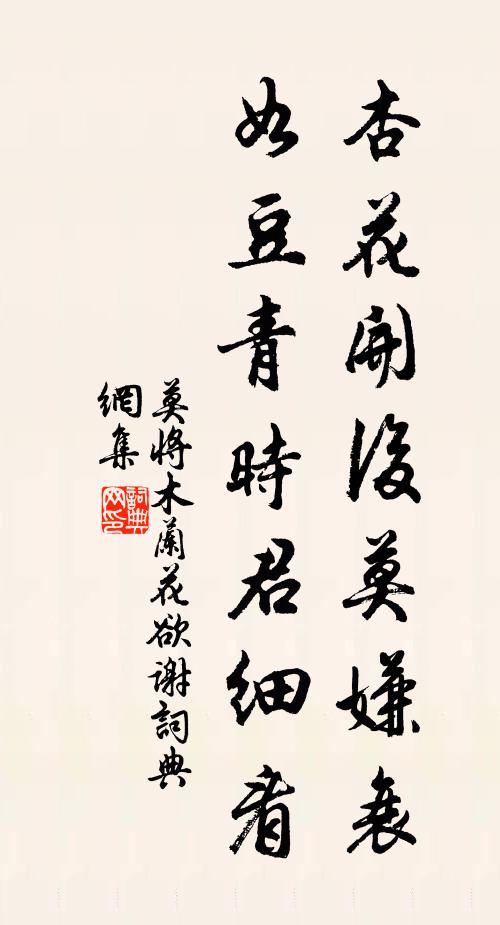 杏花開後莫嫌衰
如豆青時君細看
莫將木蘭花欲謝詞典
網集
詞典
网印